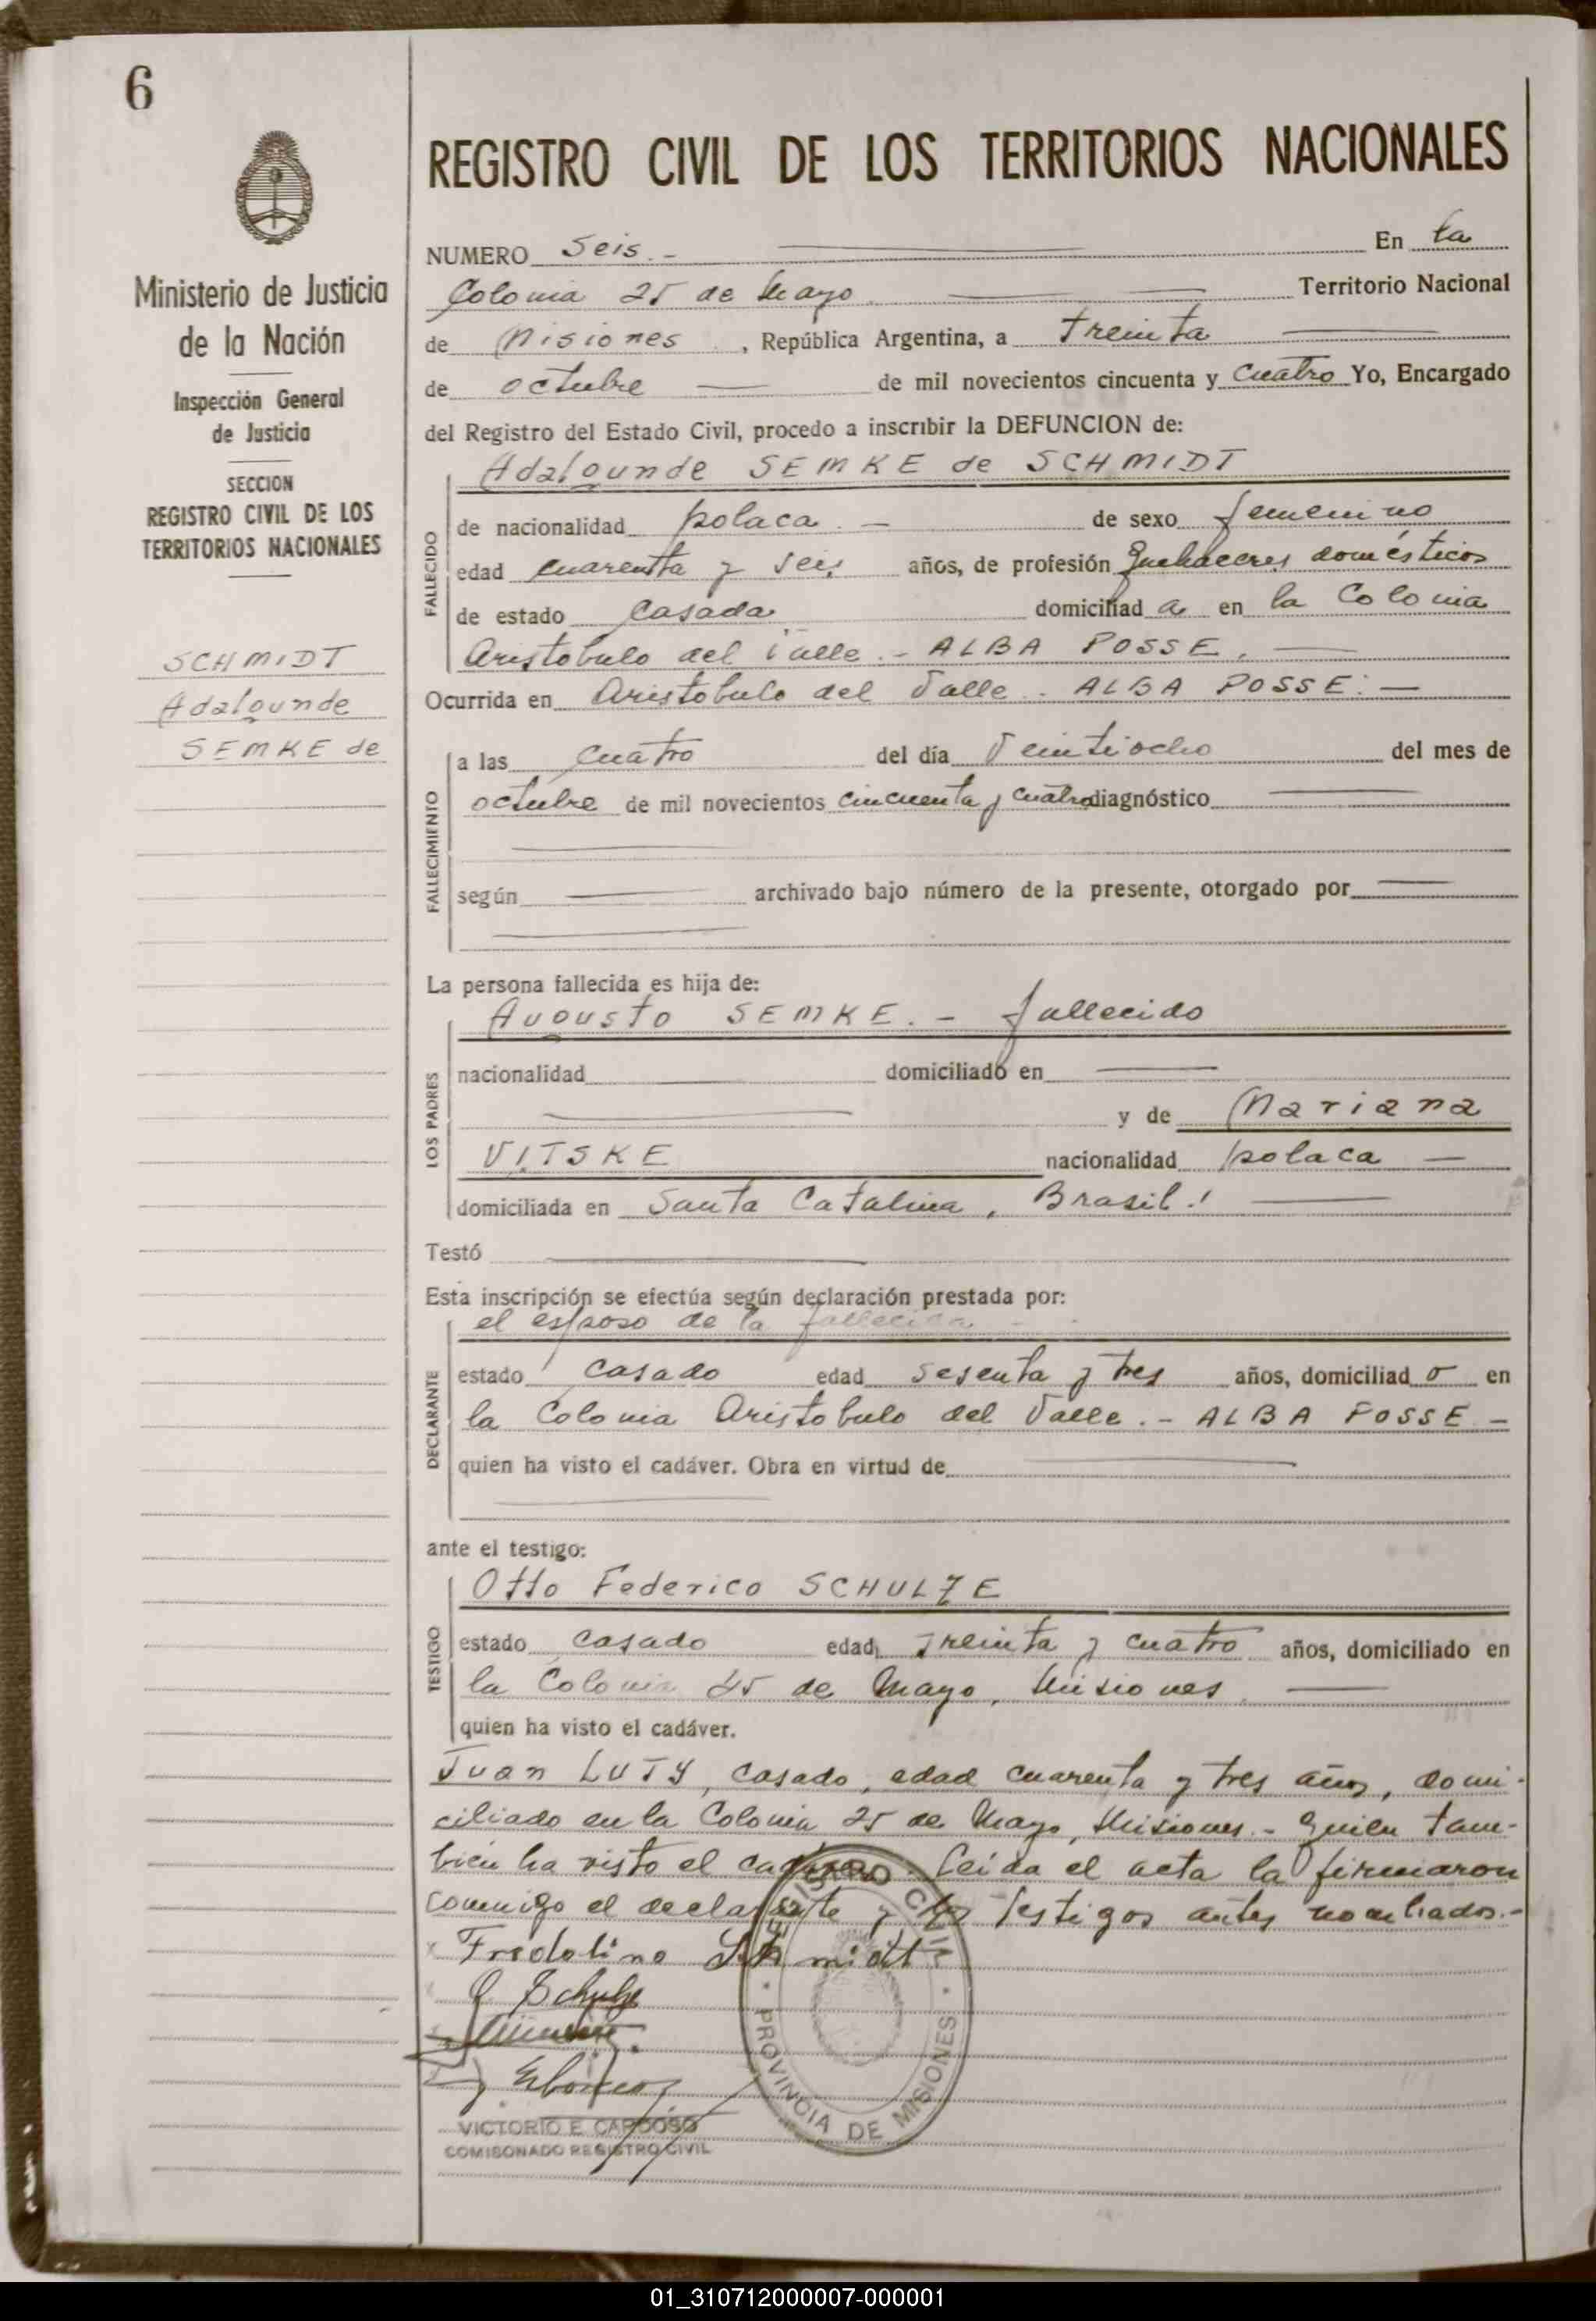 6
REGISTRO CIVIL DE LOS TERRITORIOS NACIONALES
Ministerio de Justicia
de la Nación
Inspección General
de Justicia
SECCION
REGISTRO CIVIL DE LOS
TERRITORIOS NACIONALES
SCHMIDT
Adalgunde
SEMKE de
NUMERO Seis.- En la
Colonia 25 de Mayo. Territorio Nacional
de Misiones, República Argentina, a treinta
de octubre de mil novecientos cincuenta y cuatro Yo, Encargado
del Registro del Estado Civil, procedo a inscribir la DEFUNCION de:
Adalgunde SEMKE de SCHMIDT
FALLECIDO
de nacionalidad polaca.- de sexo femenino
edad cuarenta y seis años, de profesión Quehaceres domésticos
de estado Casada domiciliad a en la Colonia
Aristobulo del Valle.- ALBA POSSE.
Ocurrida en Aristobulo del Valle. ALBA POSSE.-
FALLECIMIENTO
a las cuatro del día Veintiocho del mes de
octubre de mil novecientos cincuenta y cuatro diagnóstico
según archivado bajo número de la presente, otorgado por
La persona fallecida es hija de:
LOS PADRES
Augusto SEMKE.- fallecido
nacionalidad domiciliado en
y de Mariana
VITSKE nacionalidad polaca
domiciliada en Santa Catalina, Brasil.!
Testó
Esta inscripción se efectúa según declaración prestada por:
DECLARANTE
el esposo de la fallecida
estado casado edad sesenta y tres años, domiciliad o en
la Colonia Aristobulo del Valle.- ALBA POSSE -
quien ha visto el cadáver. Obra en virtud de
ante el testigo:
TESTIGO
Otto Federico SCHULZE
estado casado edad treinta y cuatro años, domiciliado en
la Colonia 25 de Mayo, Misiones.
quien ha visto el cadáver.
Juan LUTY, casado, edad cuarenta y tres años, domi-
ciliado en la Colonia 25 de Mayo, Misiones.- Quien tam-
bien ha visto el cadáver. Leida el acta la firmaron
conmigo el declarante y los testigos antes nombrados.-
Fredolino Schmidt
O Schulze
REGISTRO CIVIL
PROVINCIA DE MISIONES
VICTORIO E. CARDOSO
COMISONADO REGISTRO CIVIL
01_310712000007-000001